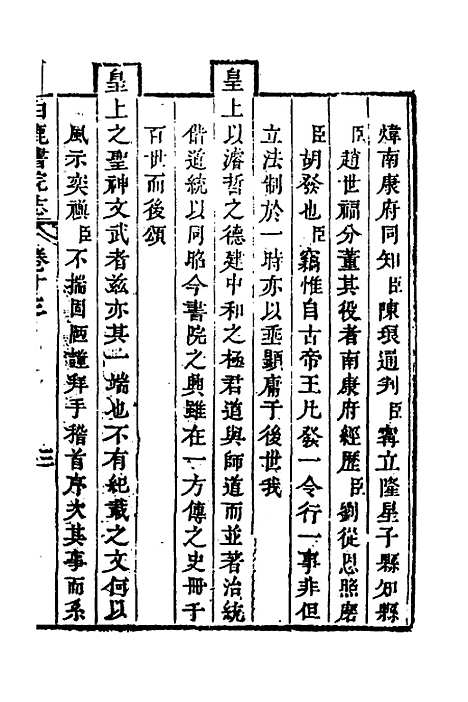 煒南康府同知臣陳珢通判臣甯立隆星子縣知縣
臣趙世福分董其役者南康府經歷臣劉從恩照磨
臣胡發也臣竊惟自古帝王凡發一令行一事非但
立法制於一時亦以垂顯庸于後世我
皇上以濬哲之德建中和之極君道與師道而並著治統
偕道統以同昭今書院之興雖在一方傳之史冊于
百世而後頌
皇上之聖神文武者茲亦其一端也不有紀載之文何以
風示奕禩臣不揣固陋謹拜手稽首序次其事而系
白鹿書院志 卷十三 三